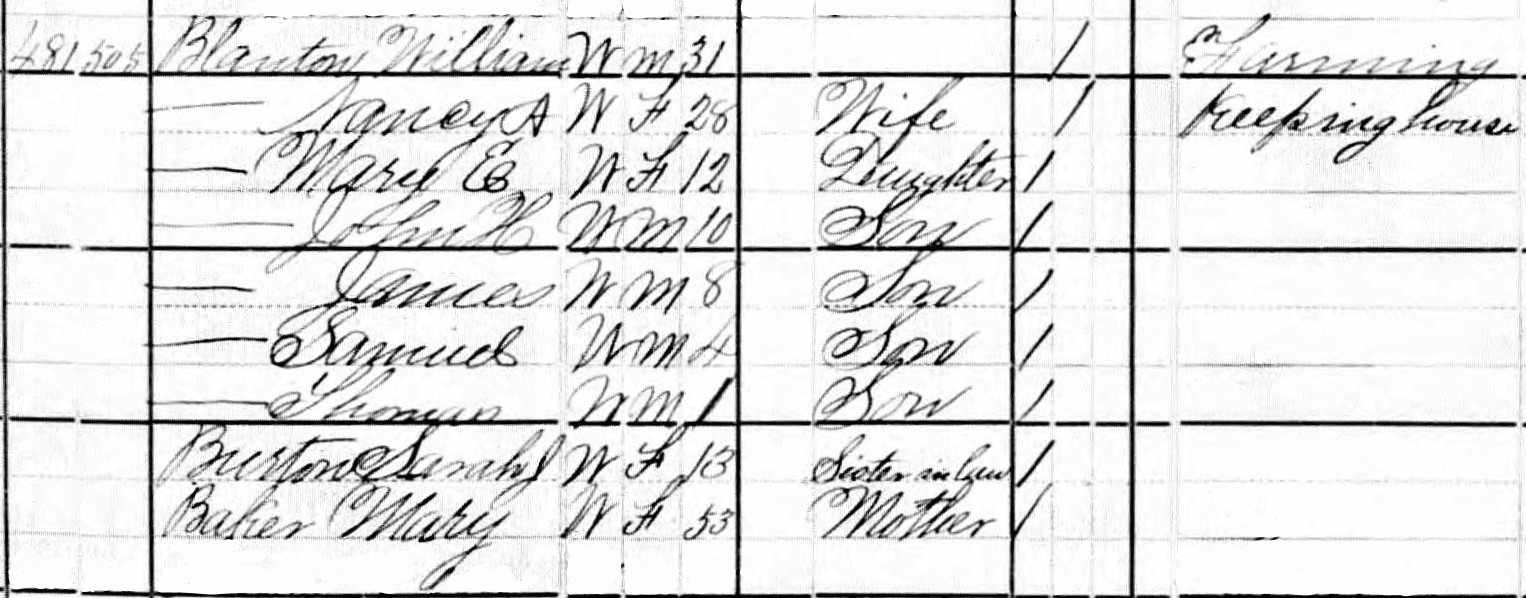 481 505 Blanton William W M 31 1 Farming
— Nancy A W F 28 Wife 1 Keeping house
— Mary E W F 12 Daughter 1
— John H W M 10 Son 1
— James W M 8 Son 1
— Samuel W M 4 Son 1
— Thomas W M 1 Son 1
Burton Sarah J W F 13 Sister in law 1
Baker Mary W F 53 Mother 1